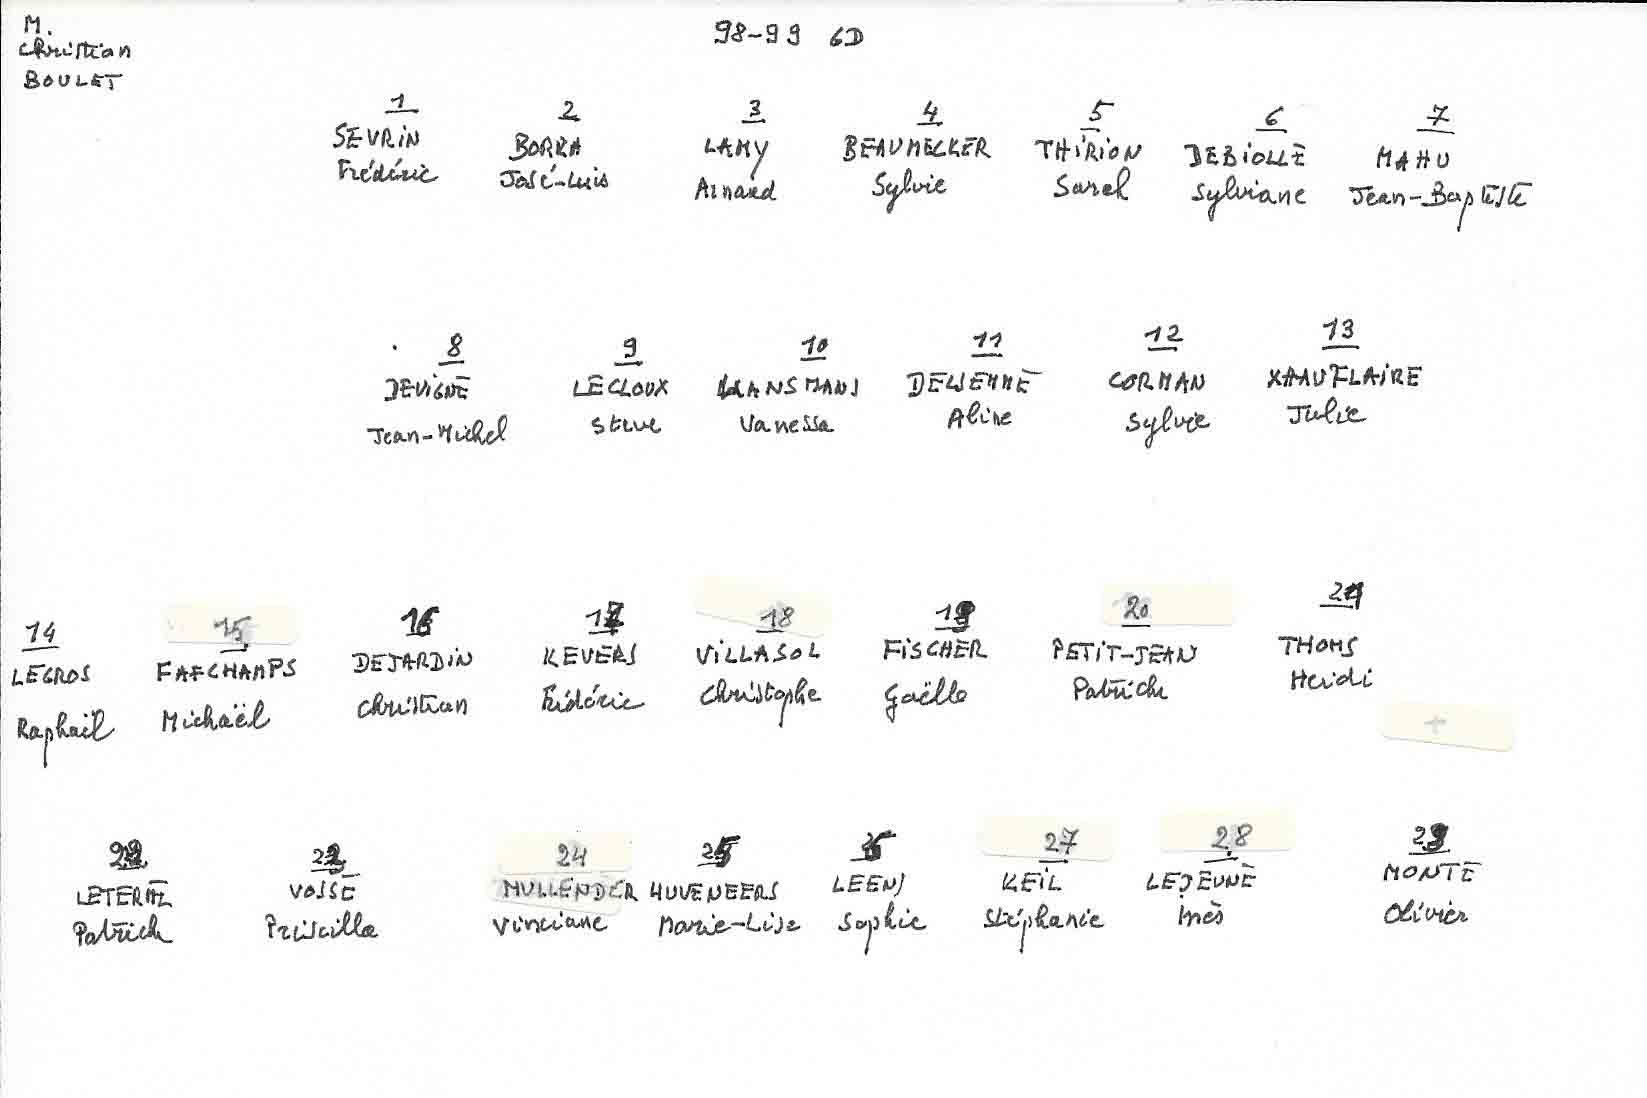 M.
Christian
BOULET
98-99 6D
1 2 3 4 5 6 7
SEVRIN BORRA LAMY BEAUMECKER THIRION DEBIOLLE MAHU
Frédéric José-Luis Arnaud Sylvie Sarah Sylviane Jean-Baptiste
8 9 10 11 12 13
DEVIGNE LECLOUX KLANSMANS DELIEMME CORMAN XHAUFLAIRE
Jean-Michel Steve Vanessa Aline Sylvie Julie
14 15 16 17 18 19 20 21
LEGROS FAFCHAMPS DEJARDIN KEVERS VILLASOL FISCHER PETIT-JEAN THOMS
Raphaël Michaël Christian Frédéric Christophe Gaëlle Patrick Heidi
+
22 23 24 25 26 27 28 29
LETERME VOSSE MULLENDER HUVENEERS LEENS KEIL LEJEUNE MONTE
Patrick Priscilla Vinciane Marie-Lise Sophie Stéphanie Inès Olivier